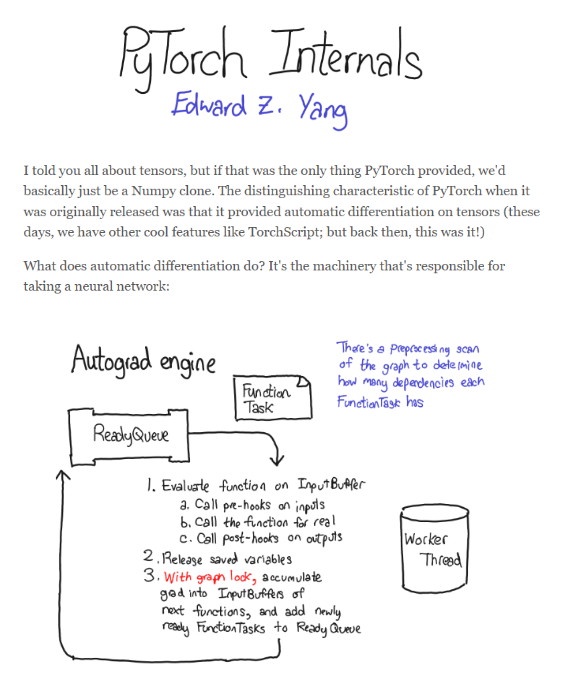 PyTorch Internals
Edward Z. Yang
I told you all about tensors, but if that was the only thing PyTorch provided, we'd
basically just be a Numpy clone. The distinguishing characteristic of PyTorch when it
was originally released was that it provided automatic differentiation on tensors (these
days, we have other cool features like TorchScript; but back then, this was it!)
What does automatic differentiation do? It's the machinery that's responsible for
taking a neural network:
Autograd engine
There's a preprocessing scan
of the graph to determine
how many dependencies each
FunctionTask has
Function
Task
ReadyQueue
1. Evaluate function on InputBuffer
a. Call pre-hooks on inputs
b. Call the function for real
c. Call post-hooks on outputs
2. Release saved variables
3. With graph lock, accumulate
grad into InputBuffers of
next functions, and add newly
ready FunctionTasks to ReadyQueue
Worker
Thread